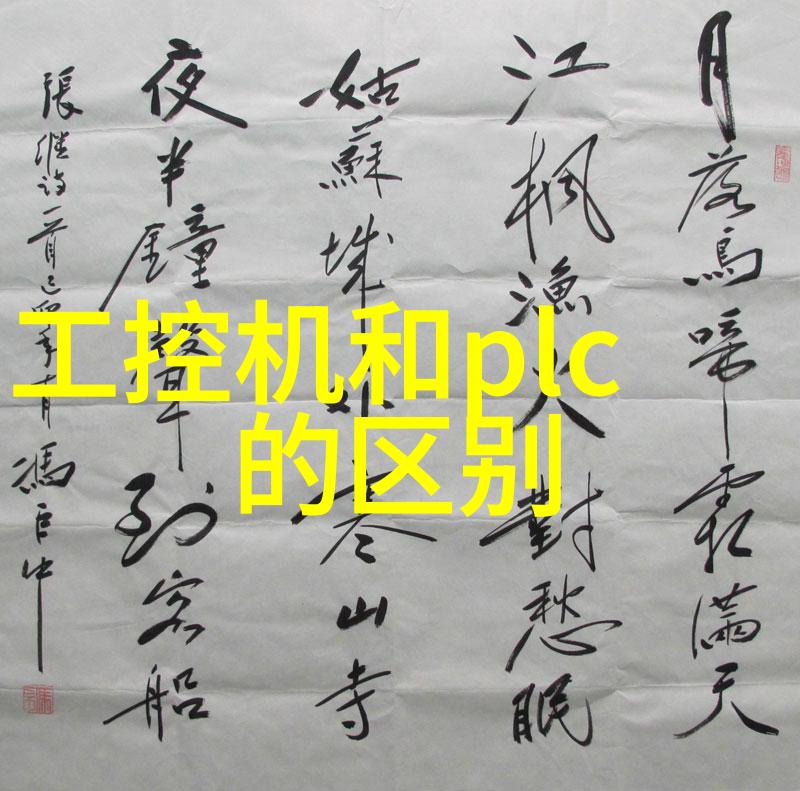 工控机和plc
的区别
月落烏啼霜滿天
江枫漁火對愁眠
姑蘇城外寒山寺
夜半鐘聲到客船
張继诗一首己丑年十月馮中